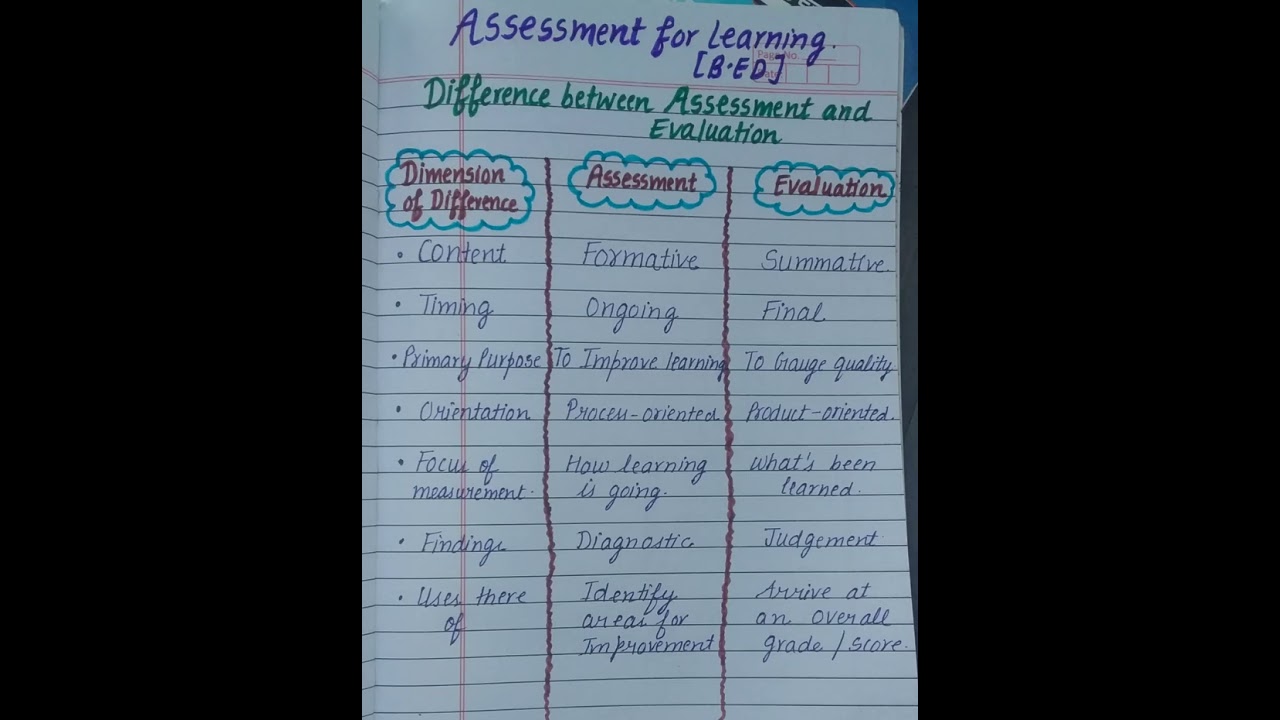 Assessment for Learning.
[B.ED]
Page No.
Date:
Difference between Assessment and
Evaluation
Dimension of Difference | Assessment | Evaluation
• Content | Formative | Summative.
• Timing | Ongoing | Final
• Primary Purpose | To Improve learning | To Gauge quality
• Orientation | Process-oriented | Product-oriented.
• Focus of | How learning | What's been
measurement. | is going. | learned.
• Findings | Diagnostic | Judgement.
• Uses there | Identify | Arrive at
of | areas for | an overall
Improvement | grade/score.